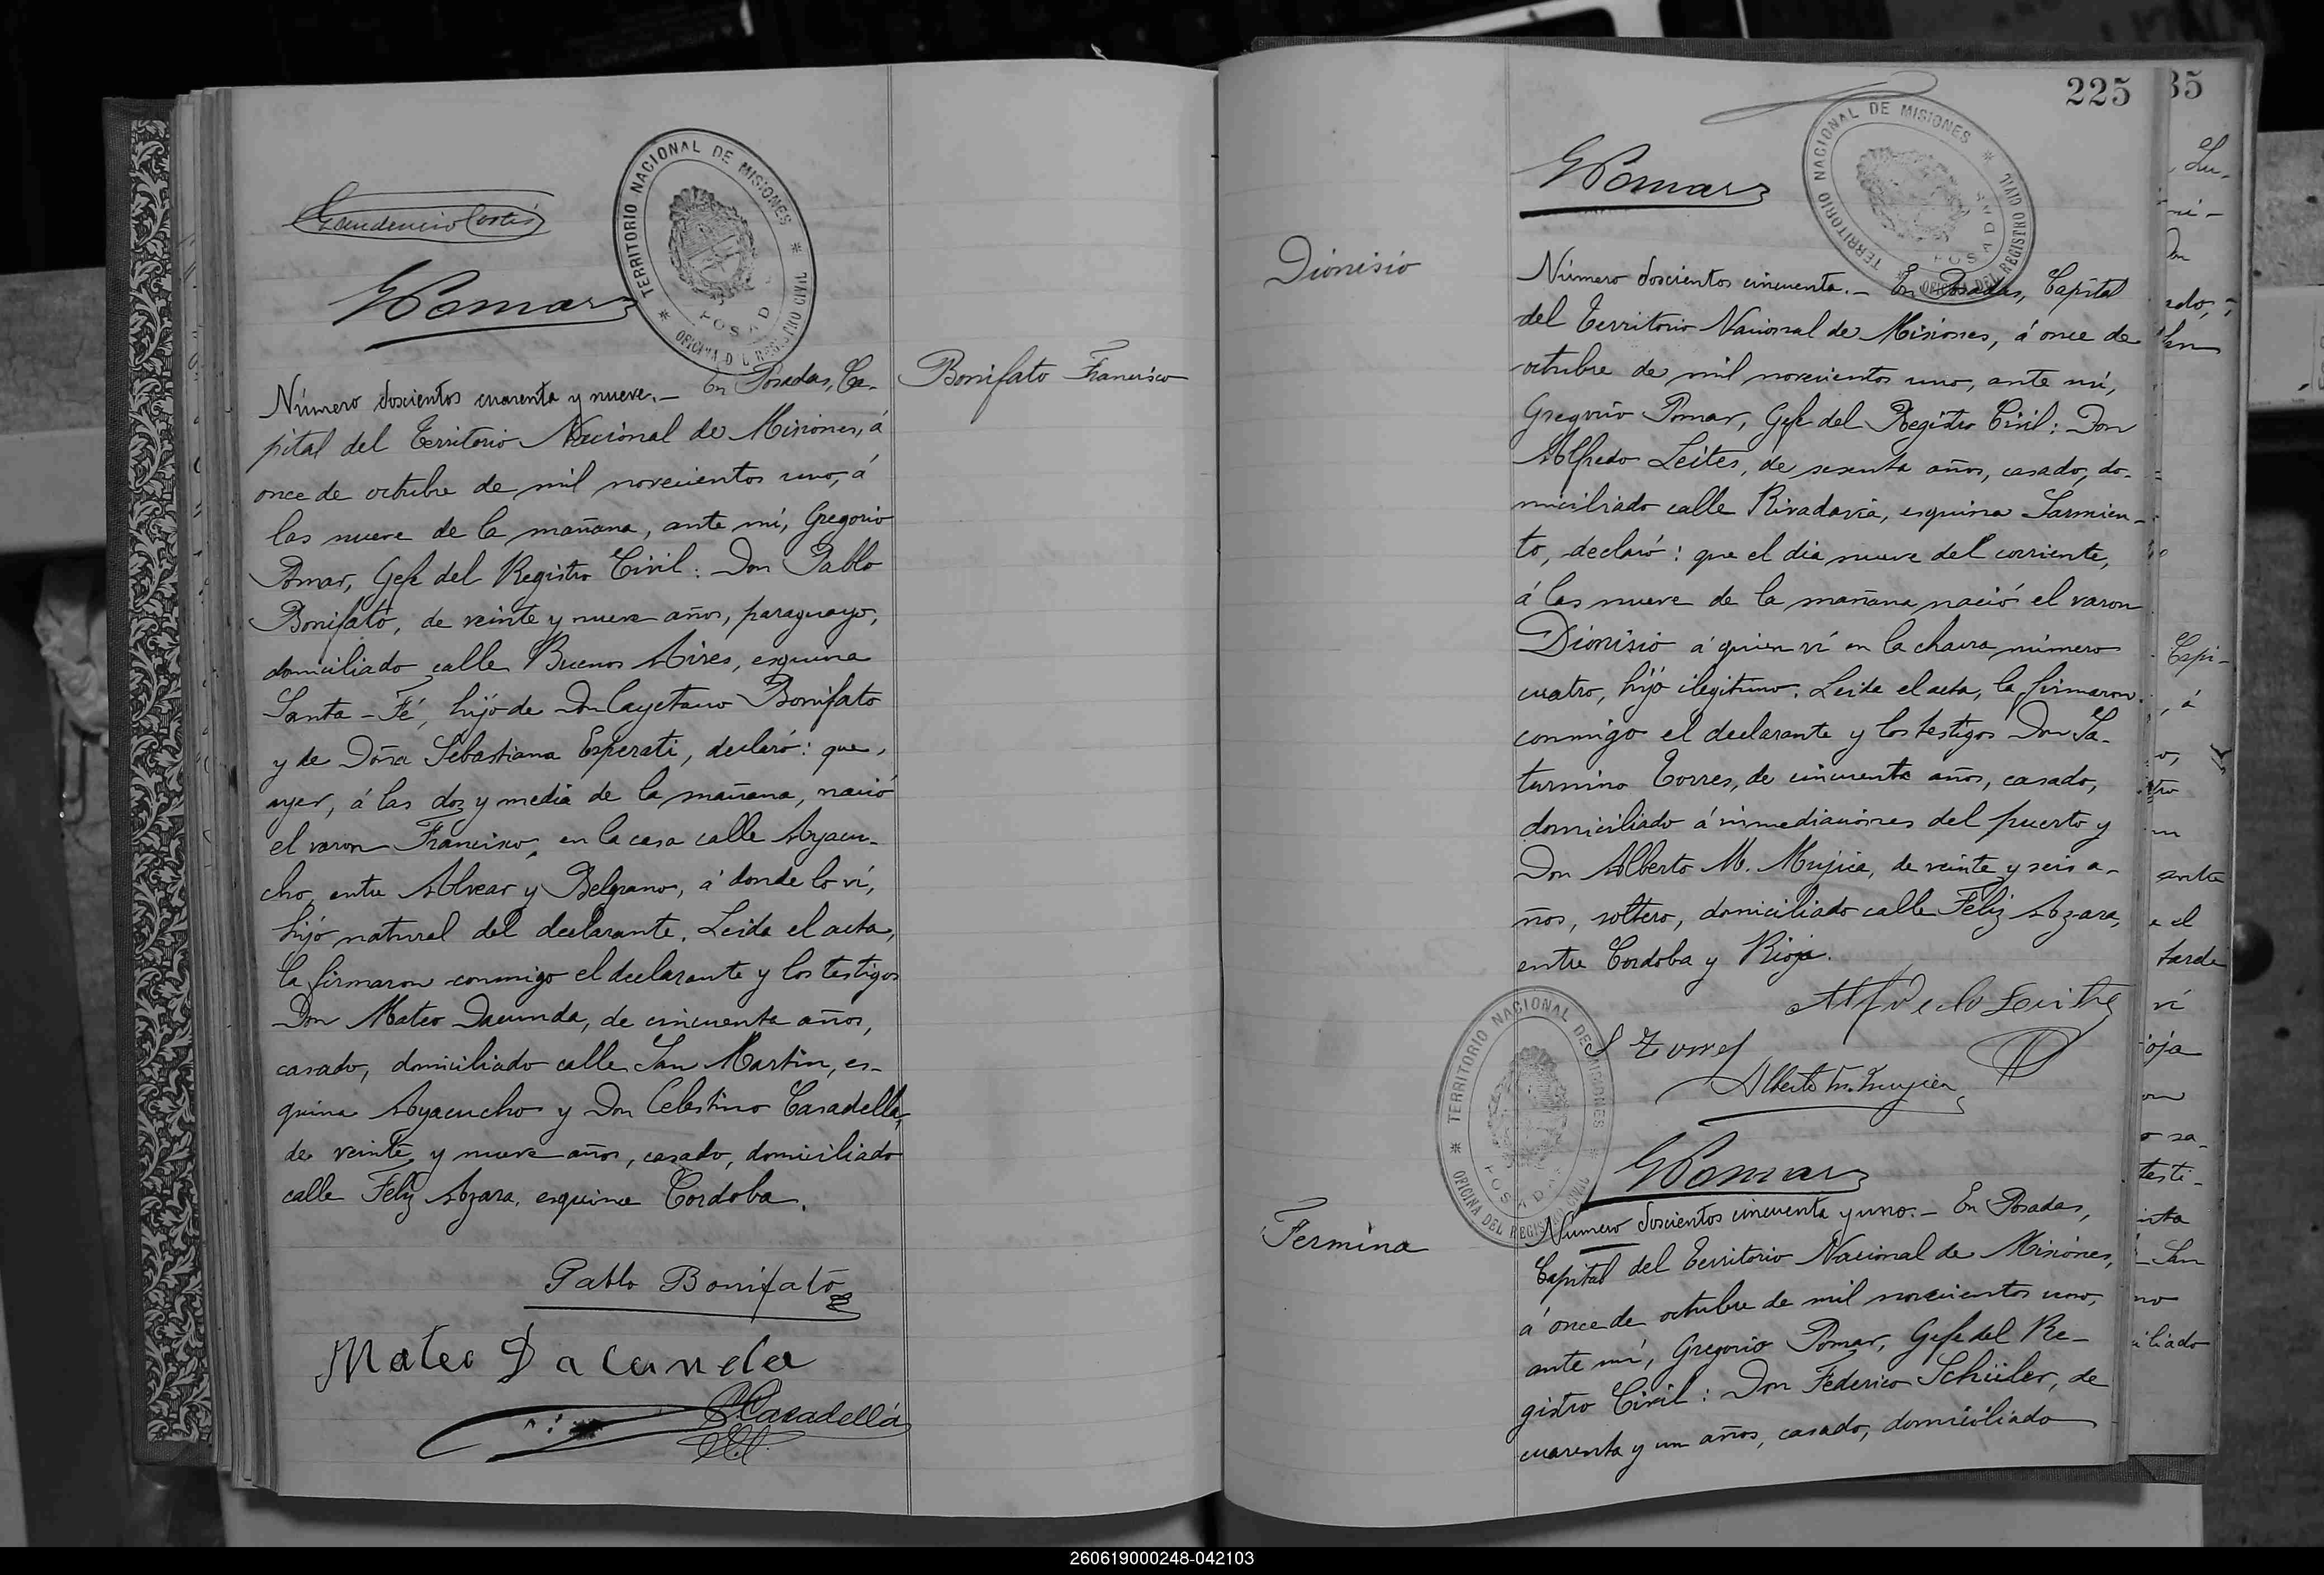 Gaudencio Cortés
TERRITORIO NACIONAL DE MISIONES
OFICINA DEL REGISTRO CIVIL
POSADAS
GPomar
Número doscientos cuarenta y nueve.— En Posadas, Ca-
pital del Territorio Nacional de Misiones, á
once de octubre de mil novecientos uno, á
las nueve de la mañana, ante mí, Gregorio
Pomar, Gefe del Registro Civil: Don Pablo
Bonifato, de veinte y nueve años, paraguayo,
domiciliado calle Buenos Aires, esquina
Santa-Fé, hijo de Don Cayetano Bonifato
y de Doña Sebastiana Esperati, declaró: que,
ayer, á las dos y media de la mañana, nació
el varon Francisco, en la casa calle Ayacu-
cho, entre Alvear y Belgrano, á donde lo ví,
hijo natural del declarante. Leida el acta,
la firmaron conmigo el declarante y los testigos
Don Mateo Dacunda, de cincuenta años,
casado, domiciliado calle San Martin, es-
quina Ayacucho y Don Celestino Casadella,
de veinte y nueve años, casado, domiciliado
calle Feliz Azara, esquina Cordoba.
Pablo Bonifato
Mateo Dacunda
CCasadellá
Bonifato Francisco
225
35
GPomar
TERRITORIO NACIONAL DE MISIONES
OFICINA DEL REGISTRO CIVIL
POSADAS
Dionisio
Número doscientos cincuenta.— En Posadas, Capital
del Territorio Nacional de Misiones, á once de
octubre de mil novecientos uno, ante mí,
Gregorio Pomar, Gefe del Registro Civil: Don
Alfredo Leites, de sesenta años, casado, do-
miciliado calle Rivadavia, esquina Sarmien-
to, declaró: que el dia nueve del corriente,
á las nueve de la mañana nació el varon
Dionisio á quien ví en la chacra número
cuatro, hijo ilegitimo. Leida el acta, la firmaron
conmigo el declarante y los testigos Don Sa-
turnino Torres, de cincuenta años, casado,
domiciliado á inmediaciones del puerto y
Don Alberto M. Mujica, de veinte y seis a-
ños, soltero, domiciliado calle Feliz Azara,
entre Cordoba y Rioja.
Alfredo Leites
S Torres
Alberto M. Mujica
TERRITORIO NACIONAL DE MISIONES
OFICINA DEL REGISTRO CIVIL
POSADAS
GPomar
Fermina
Número doscientos cincuenta y uno.— En Posadas,
Capital del Territorio Nacional de Misiones,
á once de octubre de mil novecientos uno,
ante mí, Gregorio Pomar, Gefe del Re-
gistro Civil: Don Federico Schüler, de
cuarenta y un años, casado, domiciliado
260619000248-042103